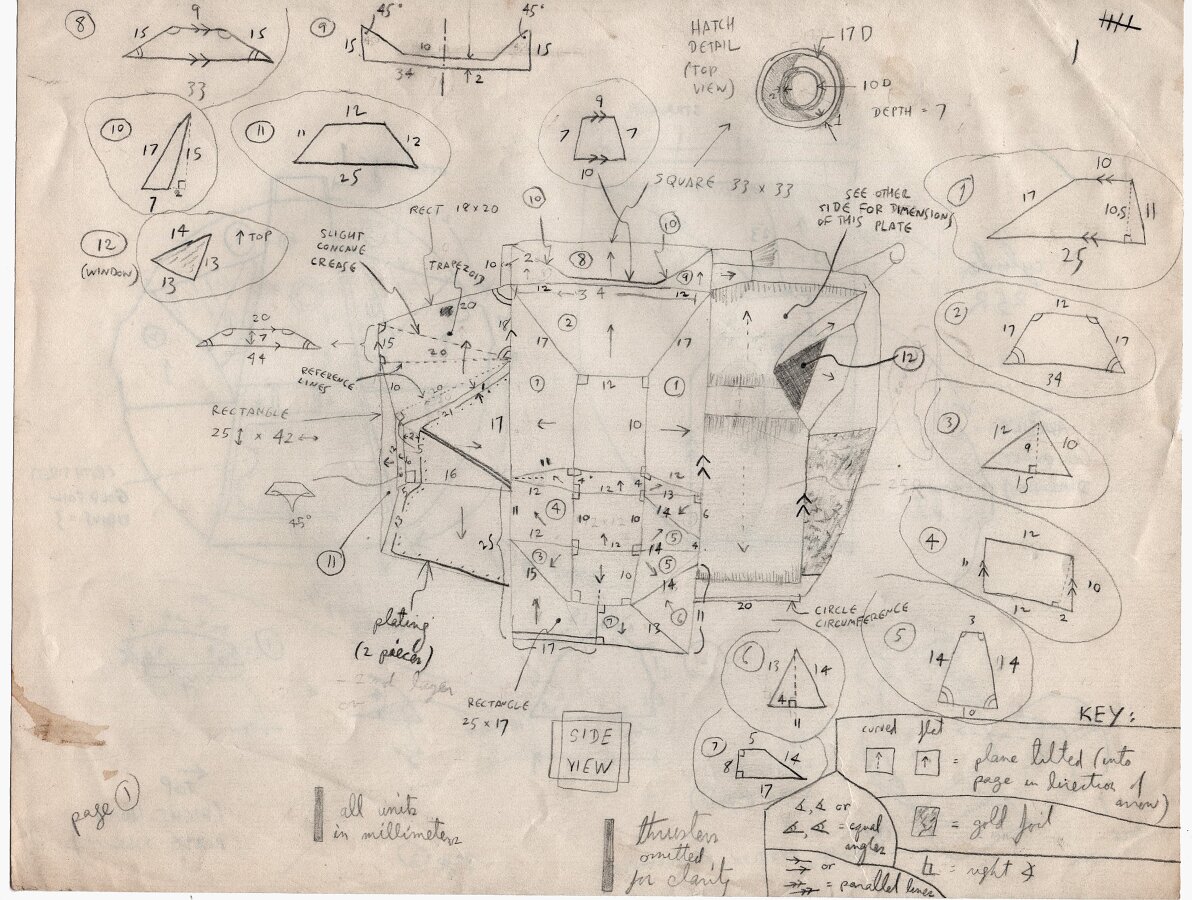 8
9
15
15
33
9
45°
45°
15
10
15
34
2
HATCH
DETAIL
(TOP
VIEW)
17 D
10 D
DEPTH = 7
1
10
17
15
7
2
11
12
11
12
25
9
7
7
10
SQUARE 33 x 33
SEE OTHER
SIDE FOR DIMENSIONS
OF THIS PLATE
1
10
17
10.5
11
25
12
(WINDOW)
14
13
13
↑ TOP
RECT 18x20
SLIGHT
CONCAVE
CREASE
TRAPEZOID
10
10
10
2
8
9
12
34
12
20
18
2
17
17
15
20
20
7
44
REFERENCE
LINES
10
20
21
RECTANGLE
25↕ x 42↔
1
12
1
17
10
16
45°
11
12
12
12
12
13
14
6
11
4
12
10
2x12
10
12
5
14
4
3
15
5
14
10
6
11
13
7
17
25
11
12
20
CIRCLE
CIRCUMFERENCE
2
12
17
17
34
3
12
9
10
15
4
12
11
10
12
2
5
3
14
14
10
6
13
14
4
11
7
5
8
14
17
plating
(2 pieces)
RECTANGLE
25 x 17
SIDE
VIEW
page 1
all units
in millimeters
thrusters
omitted
for clarity
KEY:
curved flat
= plane tilted (into
page in direction of
arrow)
∡, ∡ or
∡, ∡ = equal
angles
= gold foil
or
= parallel lines
= right ∡